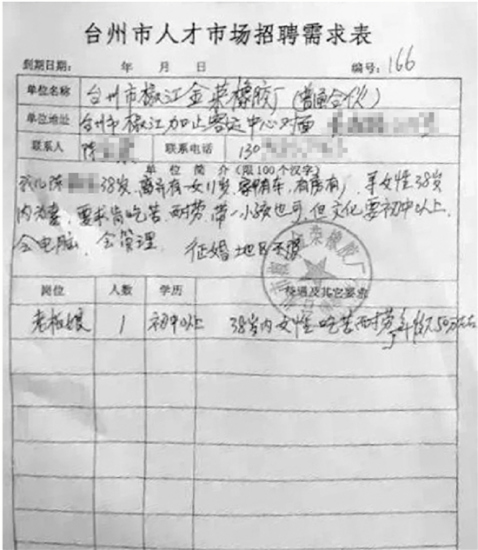 台州市人才市场招聘需求表
到期日期: 年 月 日 编号: 166
单位名称 台州市椒江金荣橡胶厂(普通合伙)
单位地址 台州市椒江加止客运中心对面
联系人 陈 联系电话 130
单位简介(限100个汉字)
我儿陈 38岁,离异有一女儿 岁,家中有车,有房,有厂,寻女性38岁
内为妻,要求肯吃苦、耐劳,带一小孩也可,但文化要初中以上,
会电脑,会管理. 征婚地区不限
金荣橡胶厂
岗位 人数 学历 待遇及其它要求
老板娘 1 初中以上 38岁内女性吃苦耐劳,年收入50万左右